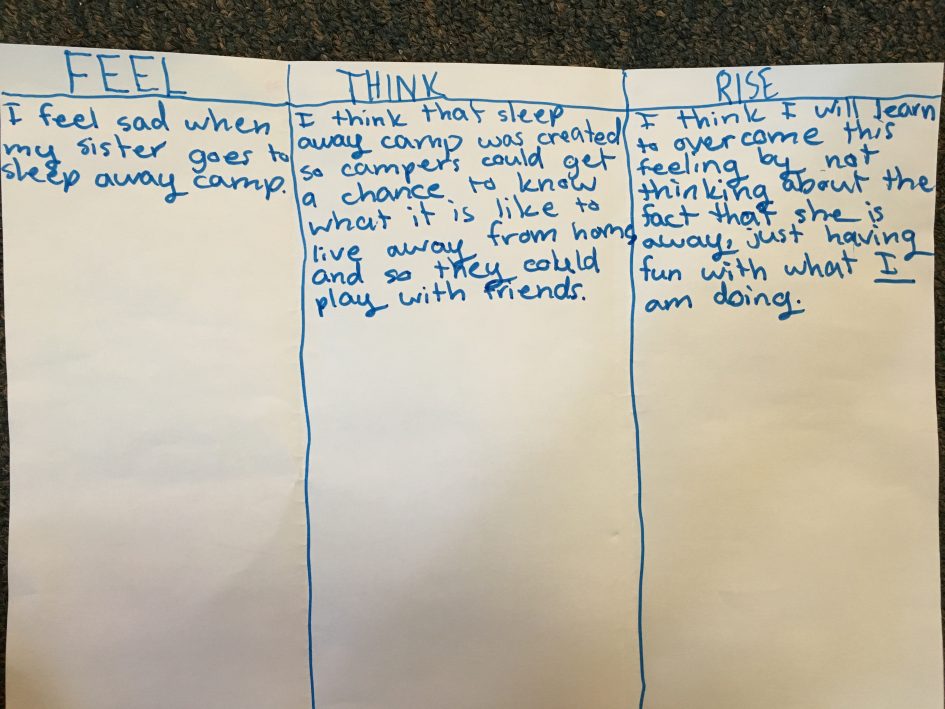 FEEL
I feel sad when
my sister goes to
sleep away camp.
THINK
I think that sleep
away camp was created
so campers could get
a chance to know
what it is like to
live away from home
and so they could
play with friends.
RISE
I think I will learn
to overcome this
feeling by not
thinking about the
fact that she is
away, just having
fun with what I
am doing.